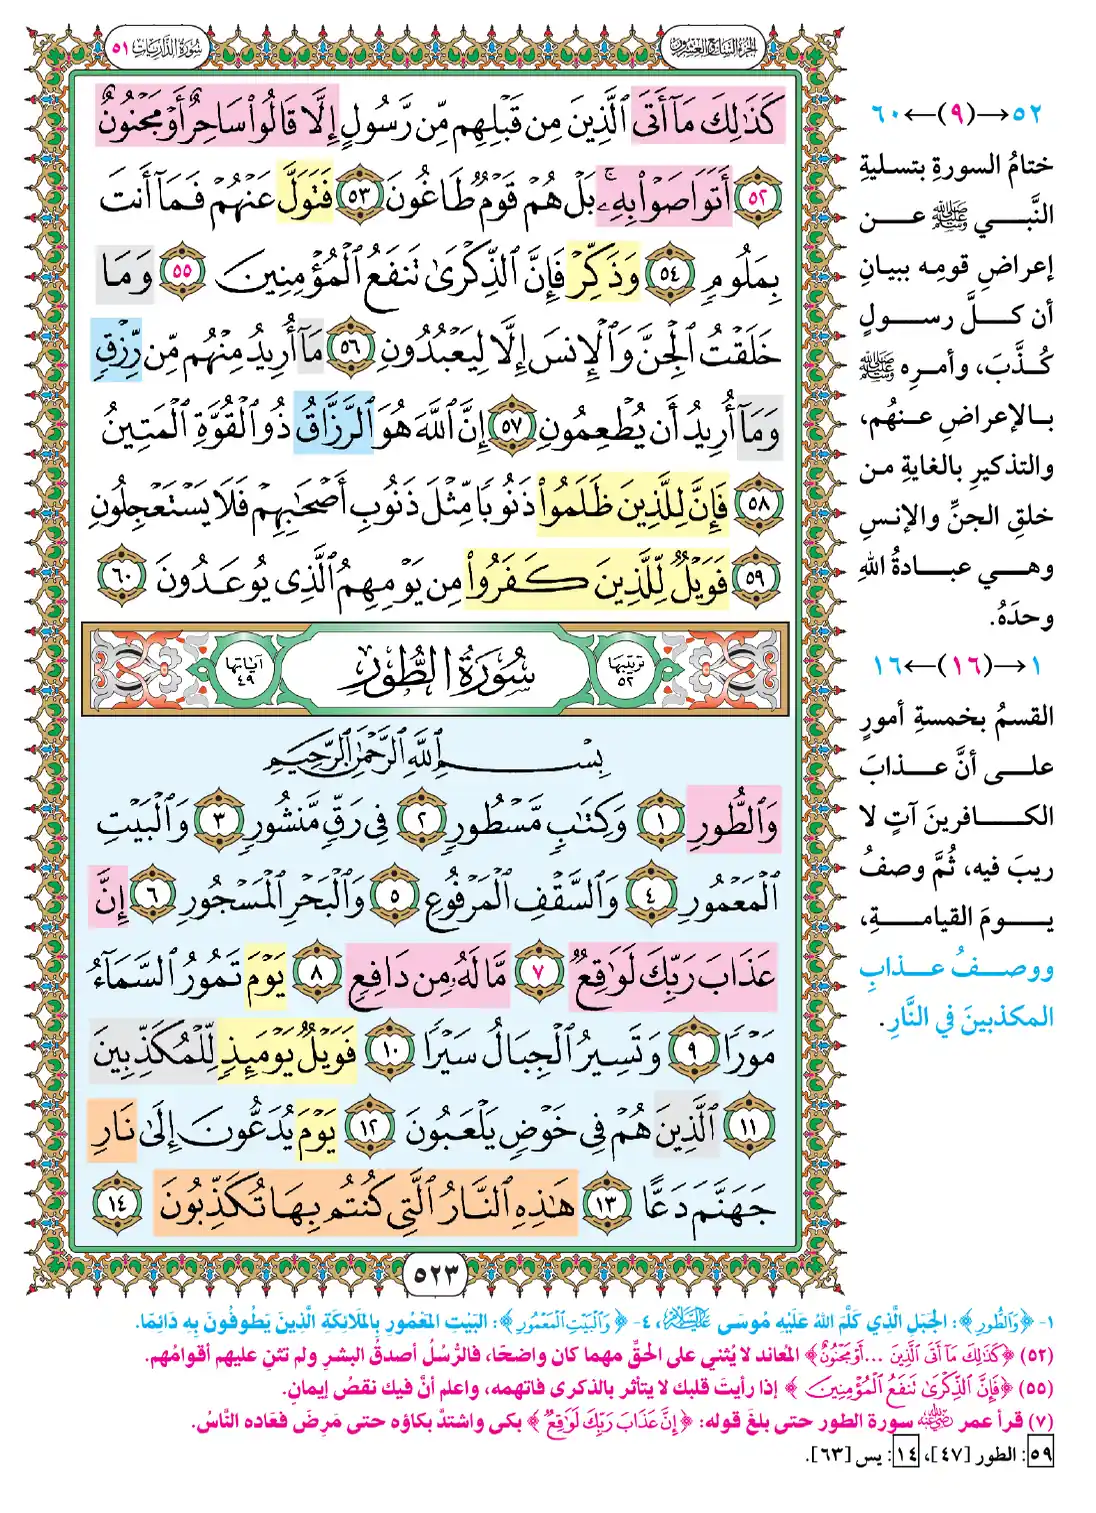 سُورَةُ الذَّارِيَات ٥١
الجزء السابع والعشرون
كَذَٰلِكَ مَآ أَتَى ٱلَّذِينَ مِن قَبْلِهِم مِّن رَّسُولٍ إِلَّا قَالُوا۟ سَاحِرٌ أَوْ مَجْنُونٌ
٥٢ أَتَوَاصَوْا۟ بِهِۦ ۚ بَلْ هُمْ قَوْمٌ طَاغُونَ ٥٣ فَتَوَلَّ عَنْهُمْ فَمَآ أَنتَ
بِمَلُومٍ ٥٤ وَذَكِّرْ فَإِنَّ ٱلذِّكْرَىٰ تَنفَعُ ٱلْمُؤْمِنِينَ ٥٥ وَمَا
خَلَقْتُ ٱلْجِنَّ وَٱلْإِنسَ إِلَّا لِيَعْبُدُونِ ٥٦ مَآ أُرِيدُ مِنْهُم مِّن رِّزْقٍ
وَمَآ أُرِيدُ أَن يُطْعِمُونِ ٥٧ إِنَّ ٱللَّهَ هُوَ ٱلرَّزَّاقُ ذُو ٱلْقُوَّةِ ٱلْمَتِينُ
٥٨ فَإِنَّ لِلَّذِينَ ظَلَمُوا۟ ذَنُوبًا مِّثْلَ ذَنُوبِ أَصْحَٰبِهِمْ فَلَا يَسْتَعْجِلُونِ
٥٩ فَوَيْلٌ لِّلَّذِينَ كَفَرُوا۟ مِن يَوْمِهِمُ ٱلَّذِى يُوعَدُونَ ٦٠
ترتيبها ٥٢
سُورَةُ الطُّورِ
آياتها ٤٩
بِسْمِ ٱللَّهِ ٱلرَّحْمَٰنِ ٱلرَّحِيمِ
وَٱلطُّورِ ١ وَكِتَٰبٍ مَّسْطُورٍ ٢ فِى رَقٍّ مَّنشُورٍ ٣ وَٱلْبَيْتِ
ٱلْمَعْمُورِ ٤ وَٱلسَّقْفِ ٱلْمَرْفُوعِ ٥ وَٱلْبَحْرِ ٱلْمَسْجُورِ ٦ إِنَّ
عَذَابَ رَبِّكَ لَوَٰقِعٌ ٧ مَّا لَهُۥ مِن دَافِعٍ ٨ يَوْمَ تَمُورُ ٱلسَّمَآءُ
مَوْرًا ٩ وَتَسِيرُ ٱلْجِبَالُ سَيْرًا ١٠ فَوَيْلٌ يَوْمَئِذٍ لِّلْمُكَذِّبِينَ
١١ ٱلَّذِينَ هُمْ فِى خَوْضٍ يَلْعَبُونَ ١٢ يَوْمَ يُدَعُّونَ إِلَىٰ نَارِ
جَهَنَّمَ دَعًّا ١٣ هَٰذِهِ ٱلنَّارُ ٱلَّتِى كُنتُم بِهَا تُكَذِّبُونَ ١٤
٥٢٣
٥٢→(٩)←٦٠
ختامُ السورةِ بتسليةِ
النَّبي ﷺ عن
إعراضِ قومِه ببيانِ
أن كلَّ رسولٍ
كُذَّبَ، وأمرِه ﷺ
بالإعراضِ عنهُم،
والتذكيرِ بالغايةِ من
خلقِ الجنِّ والإنسِ
وهي عبادةُ اللهِ
وحدَهُ.
١→(١٦)←١٦
القسمُ بخمسةِ أمورٍ
على أنَّ عذابَ
الكافرينَ آتٍ لا
ريبَ فيه، ثُمَّ وصفُ
يومَ القيامةِ،
ووصفُ عذابِ
المكذبينَ في النَّارِ.
١- ﴿وَالطُّورِ﴾: الجَبَلِ الَّذِي كَلَّمَ اللهُ عَلَيْهِ مُوسَى عَلَيْهِ السَّلَامُ، ٤- ﴿وَٱلْبَيْتِ ٱلْمَعْمُورِ﴾: البَيْتِ المَعْمُورِ بِالمَلَائِكَةِ الَّذِينَ يَطُوفُونَ بِهِ دَائِمًا.
(٥٢) ﴿كَذَٰلِكَ مَآ أَتَى ٱلَّذِينَ ...أَوْ مَجْنُونٌ﴾ المُعاند لا يُثني على الحقِّ مهما كان واضحًا، فالرُّسُلُ أصدقُ البشرِ ولم تثنِ عليهم أقوامُهم.
(٥٥) ﴿فَإِنَّ ٱلذِّكْرَىٰ تَنفَعُ ٱلْمُؤْمِنِينَ﴾ إذا رأيتَ قلبك لا يتأثر بالذكرى فاتهمه، واعلم أنَّ فيك نقصُ إيمانٍ.
(٧) قرأ عمر رضي الله عنه سورة الطور حتى بلغَ قوله: ﴿إِنَّ عَذَابَ رَبِّكَ لَوَٰقِعٌ﴾ بكى واشتدَّ بكاؤه حتى مَرِضَ فعَاده النَّاسُ.
٥٩: الطور [٤٧]، ١٤: يس [٦٣].